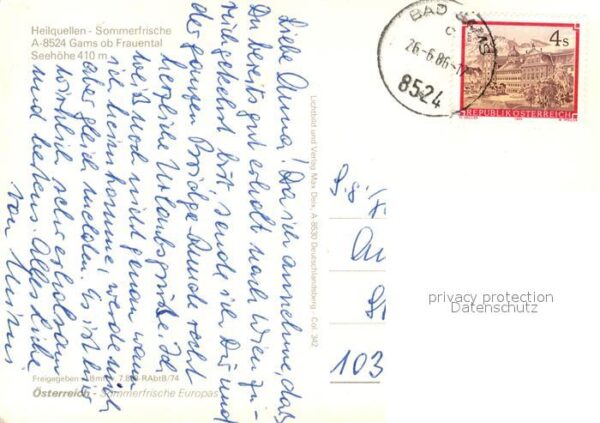 Heilquellen - Sommerfrische
A-8524 Gams ob Frauental
Seehöhe 410 m
Liebe Anna! Da ich annehme, daß
Du bereits gut erholt nach Wien zu-
rückgekehrt bist, sende ich Dir und
der ganzen Bridge Runde recht
herzliche Urlaubsgrüße. Ich
weiß noch nicht genau wann
ich heimkomme, werde mich
aber gleich melden. Es ist hier
wirklich sehr erholsam
und bestens. Alles Liebe
von
Lichtbild und Verlag Max Derx, A 8530 Deutschlandsberg - Col. 342
Freigegeben v. BmfLV 7.
-RAbtB/74
Österreich - Sommerfrische Europas
BAD GAMS
c
26.-6.86-17
8524
4 S
REPUBLIK ÖSTERREICH
103
privacy protection
Datenschutz